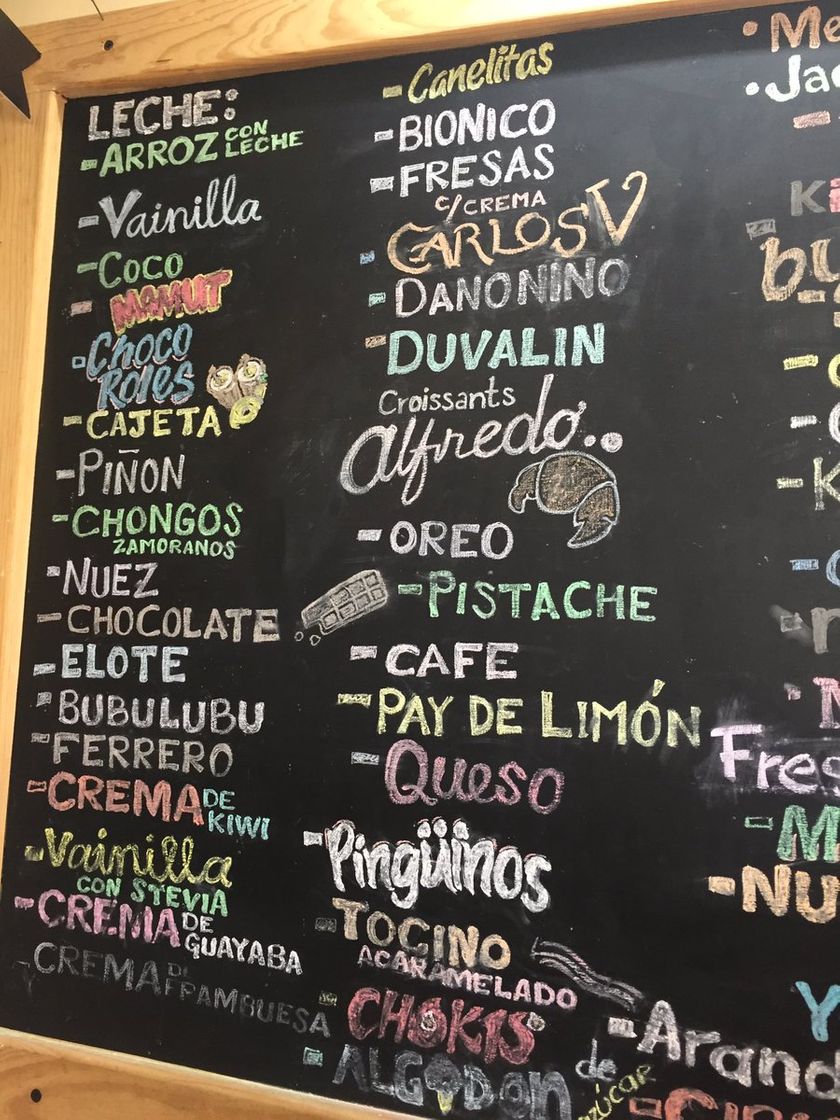 LECHE:
-ARROZ CON LECHE
-Vainilla
-COCO
-MAMUT
-CHOCO
ROLES
-CAJETA
-PIÑON
-CHONGOS
ZAMORANOS
-NUEZ
-CHOCOLATE
-ELOTE
-BUBULUBU
-FERRERO
-CREMA DE KIWI
-Vainilla
CON STEVIA
-CREMA DE GUAYABA
-CREMA DE FRAMBUESA
-Canelitas
-BIONICO
-FRESAS
C/CREMA
-CARLOS V
-DANONINO
-DUVALIN
Croissants
alfredo..
-OREO
-PISTACHE
-CAFE
-PAY DE LIMÓN
-QUESO
-Pingüinos
-TOCINO
ACARAMELADO
-CHOKIS
-ALGODON de AZÚCAR